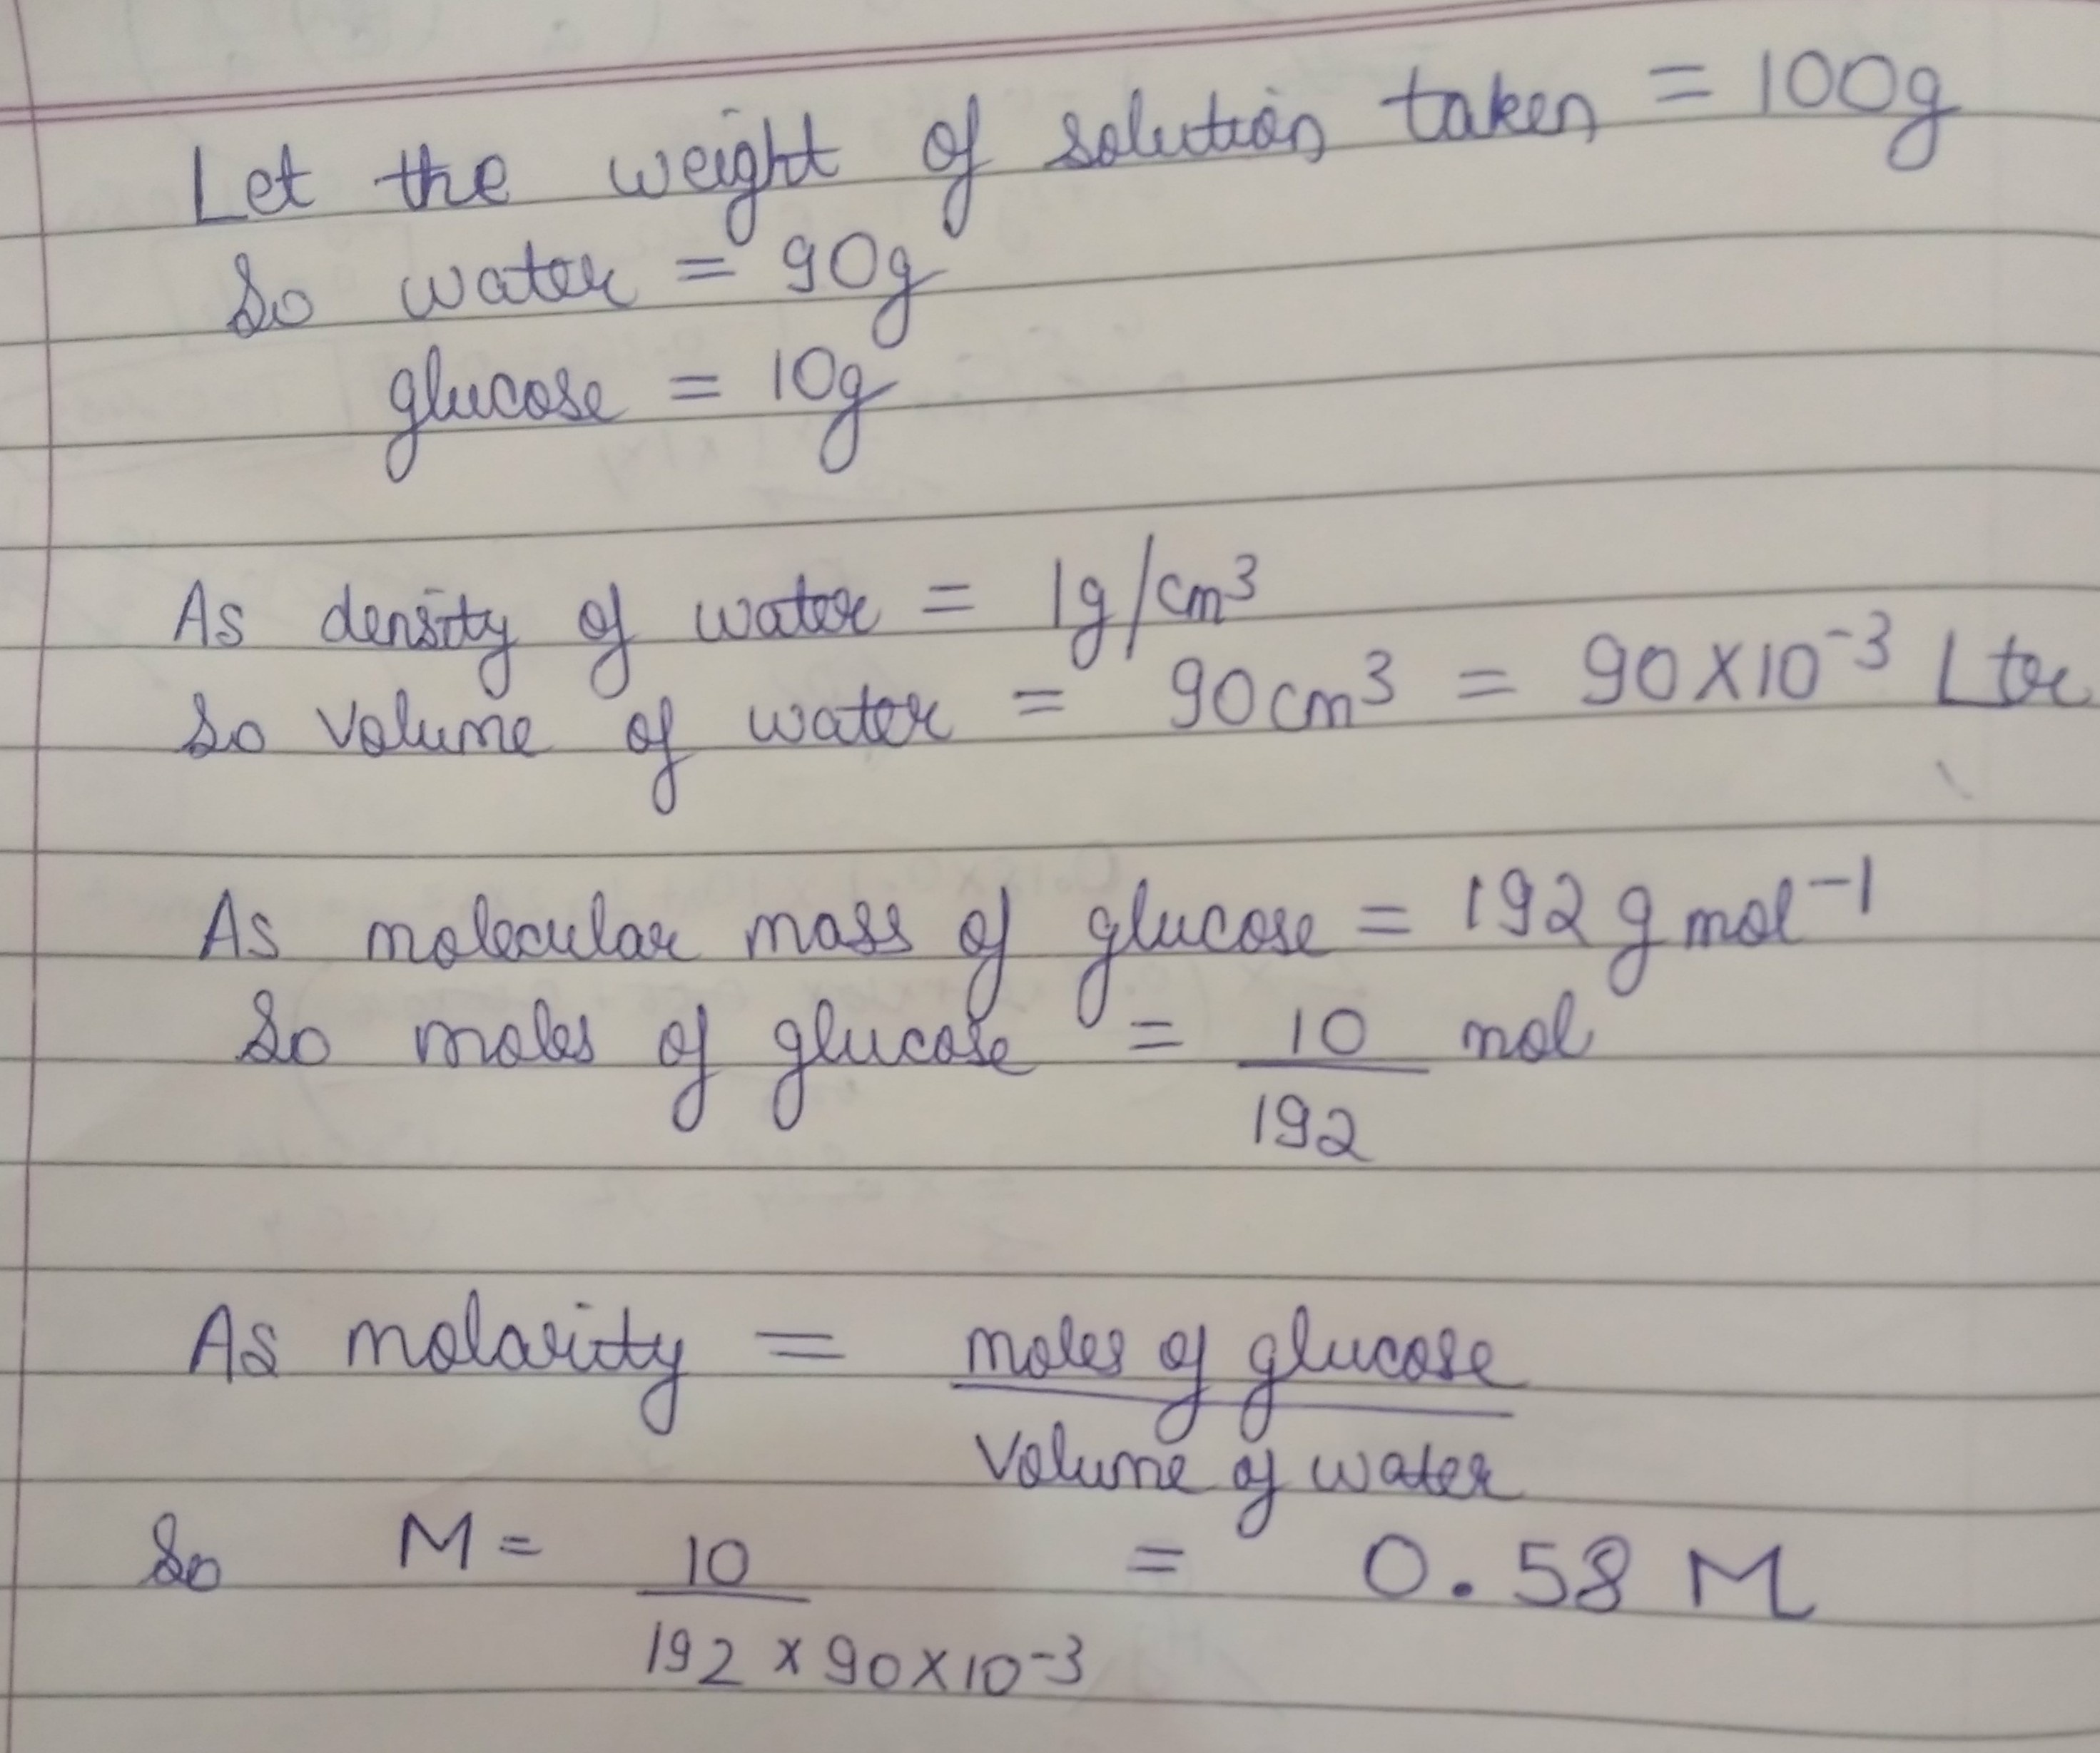 Let the weight of solution taken = 100g
So water = 90g
glucose = 10g
As density of water = 1g/cm³
So volume of water = 90cm³ = 90×10⁻³ Ltr
As molecular mass of glucose = 192 g mol⁻¹
So moles of glucose = 10 mol
192
As molarity = moles of glucose
Volume of water
So M = 10 = 0.58 M
192 × 90×10⁻³